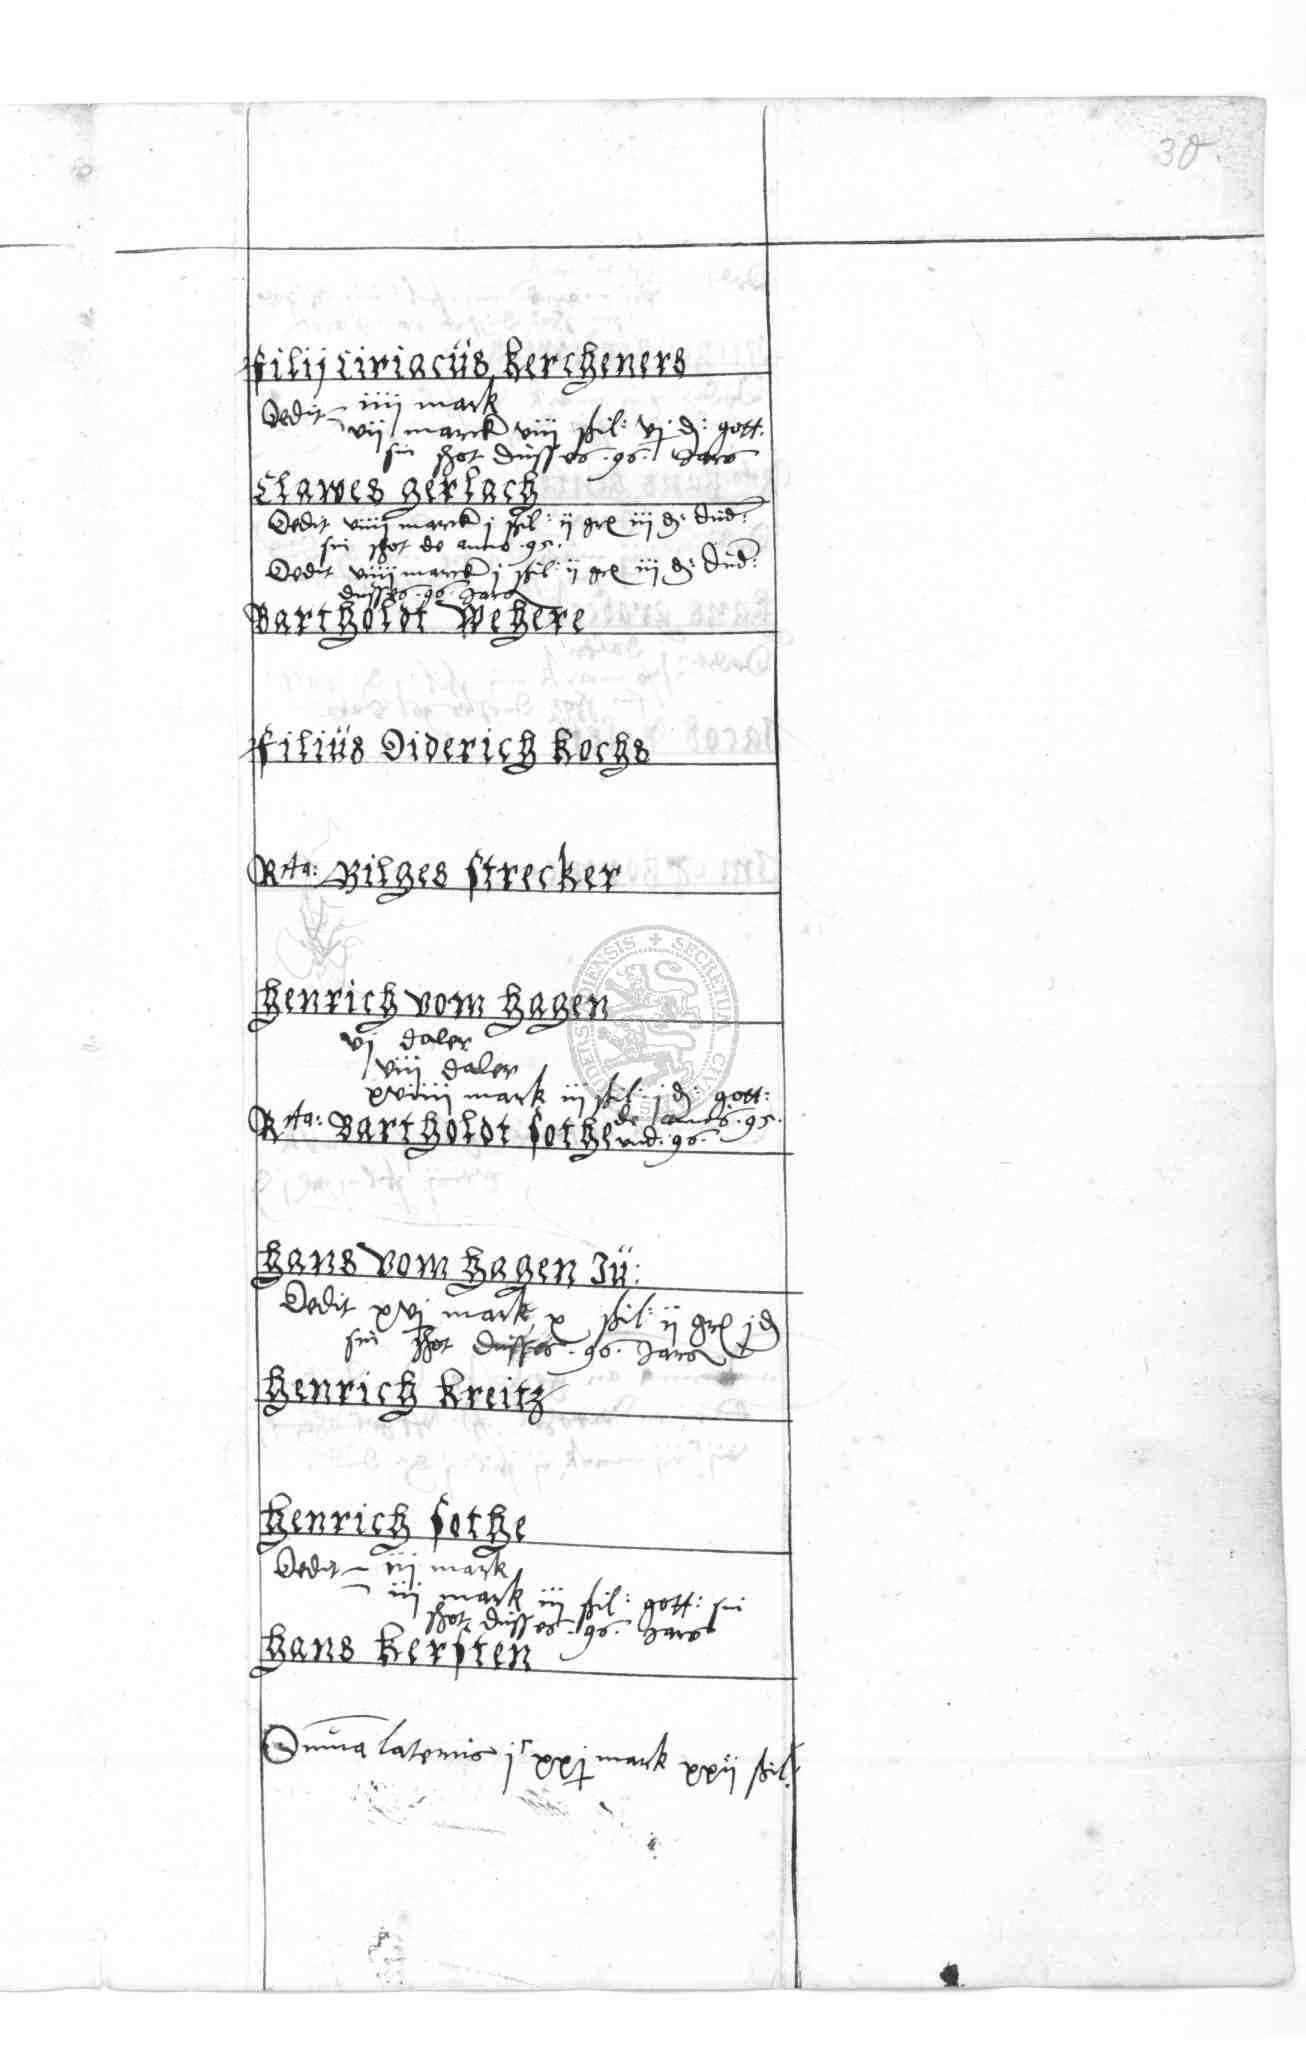 30.
Filij Ciriacüs Kercheners
Dedit iiij mark
vij marck viij ßil: vj d: gott:
sin shot dusses .96. Jars
Clawes Gerlach
Dedit viiij marck j ßil: ij gr iij d: Dud:
sin shot de anno .95.
Dedit viiij marck j ßil: ij gr iij d: Dud:
dusses .96. Jars
Bartholdt Wehere
Filiüs Diderich Kochs
Rta: Bilges Strecker
Henrich vom Hagen
vj daler
viij daler
xviiij mark iij ßil: j d: gott:
de anno .95.
Rta: Bartholdt Sothe und .96.
Hans vom Hagen Jü:
Dedit xvj mark x ßil: ij gr j d
sin shot dusses .96. Jars
Henrich Kreitz
Henrich Sothe
Dedit iij mark
iij mark iij ßil: gott: sin
shot dusses .96. Jars
Hans Kersten
Suma lateris jc xxj mark xxij ßil.
SECRETUM CIVI